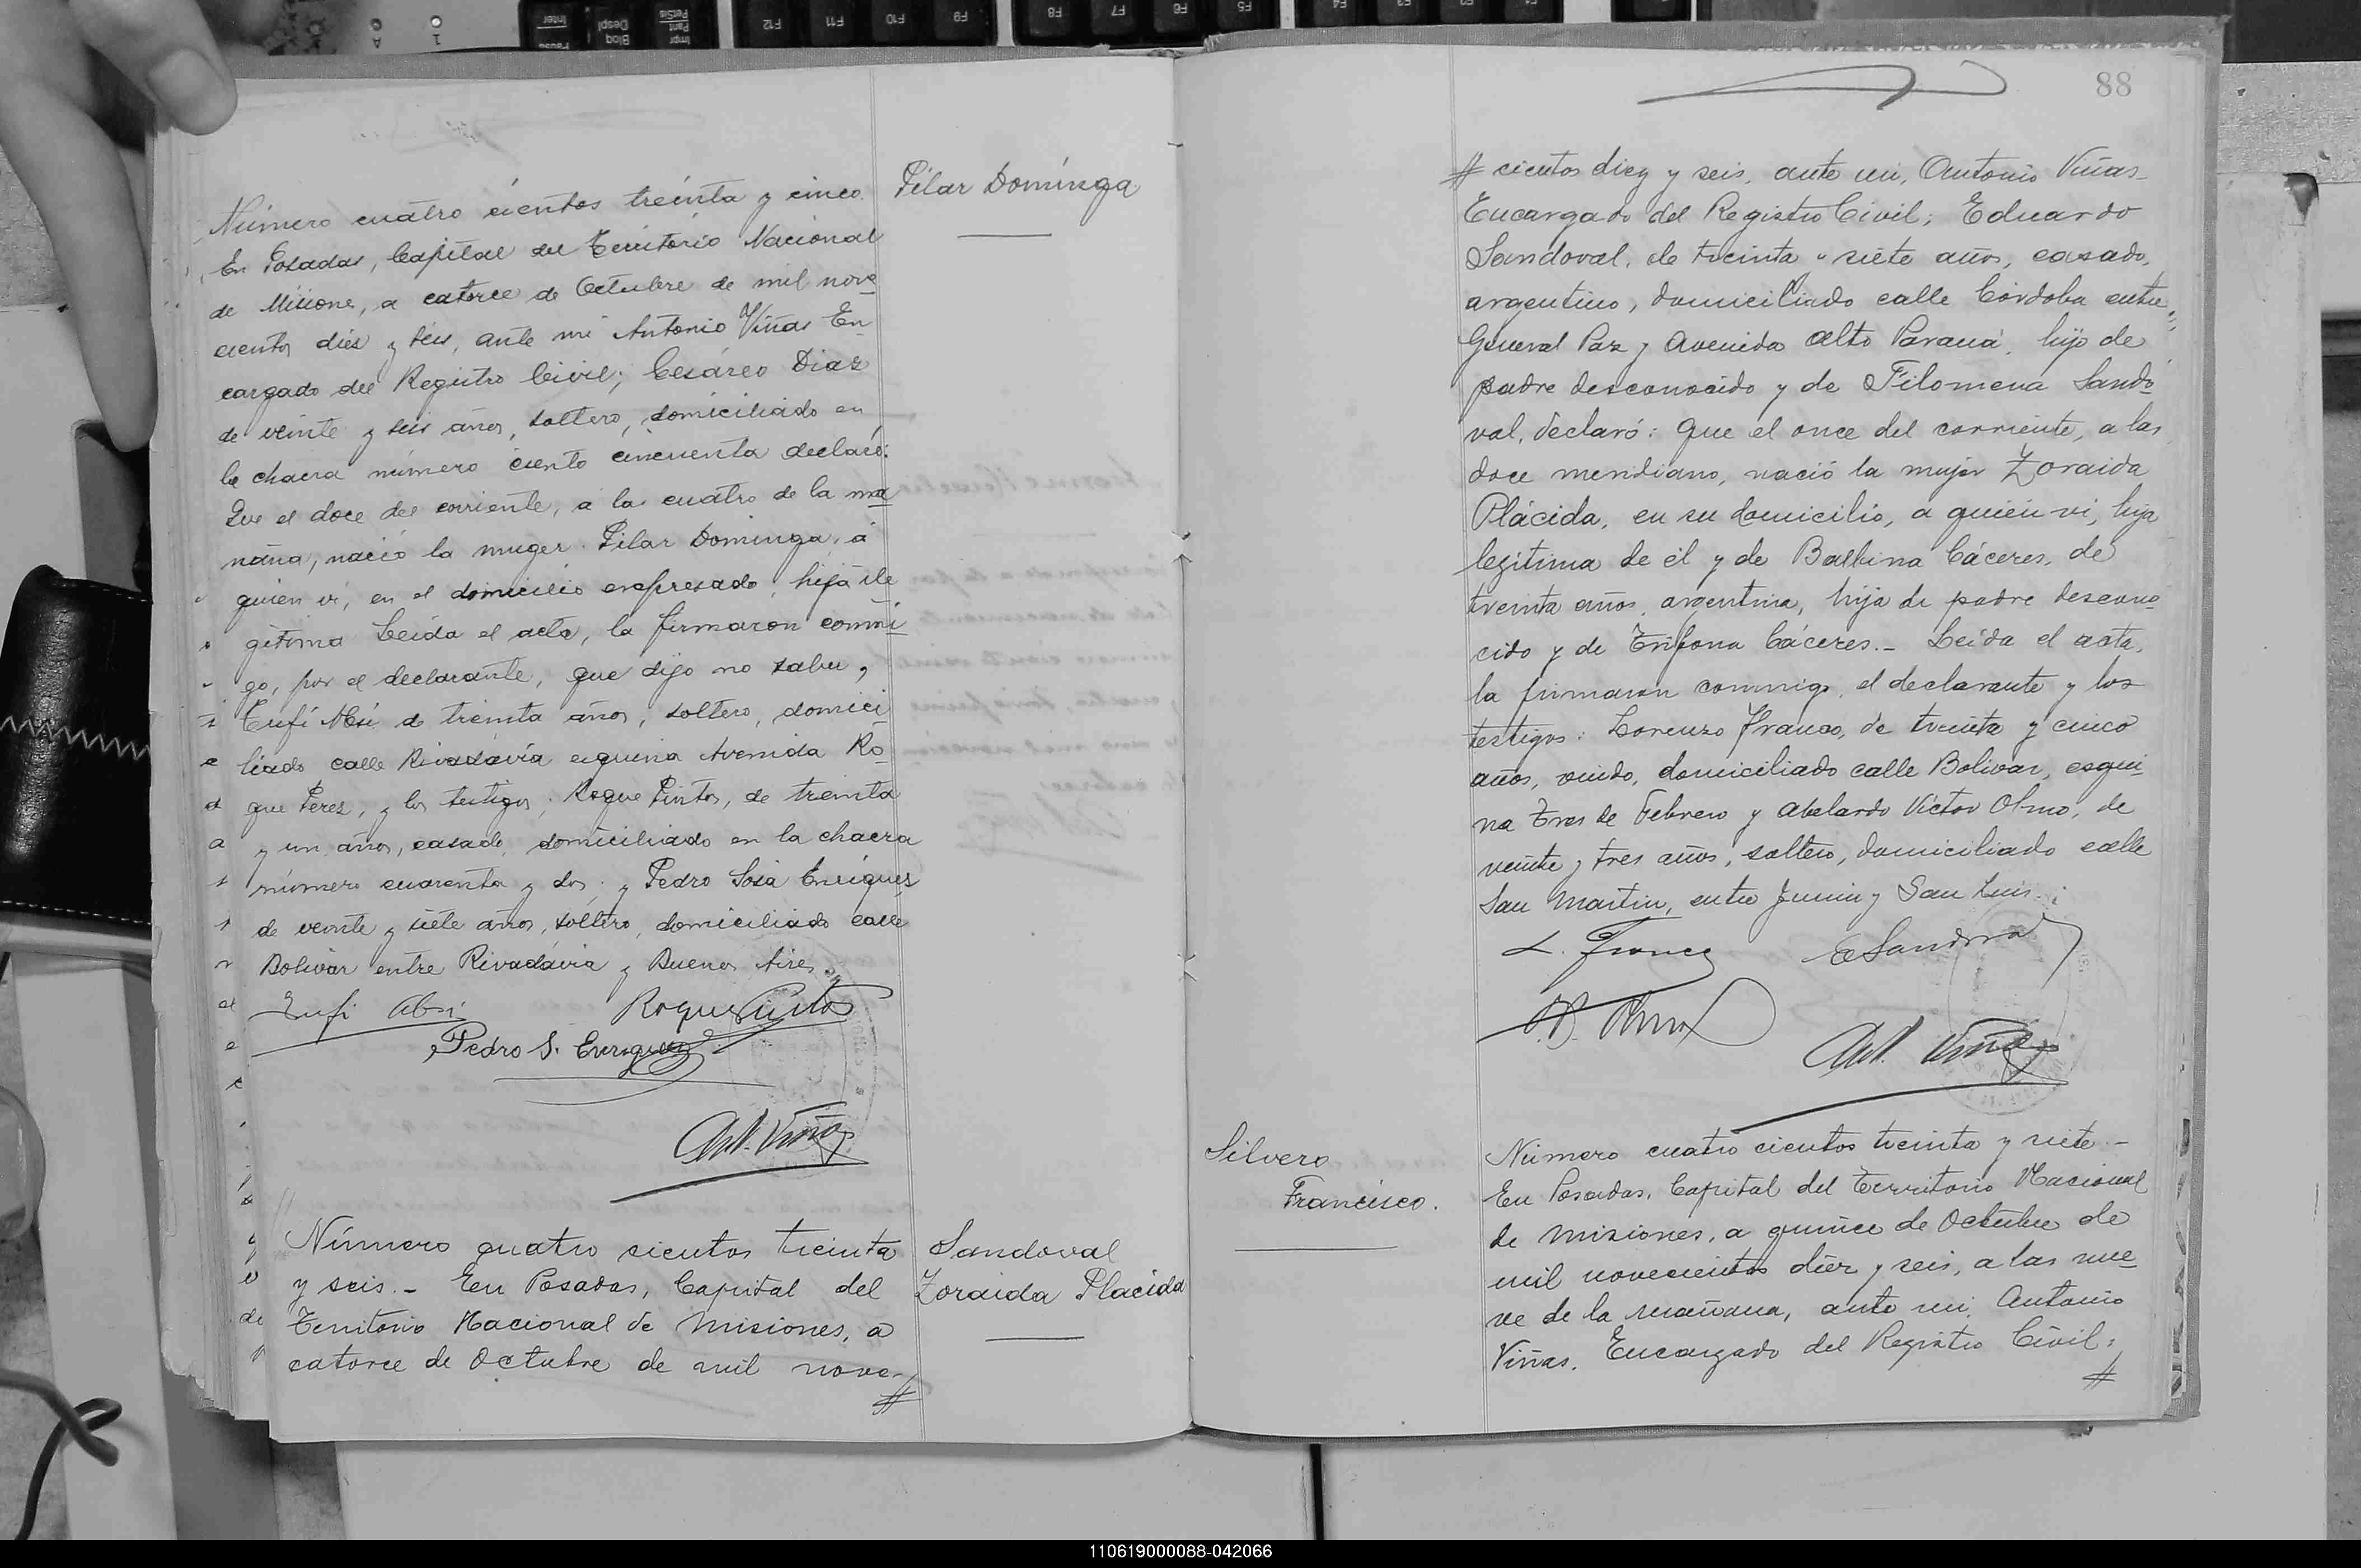 Pilar Dominga
Número cuatro cientos treinta y cinco.
En Posadas, Capital del Territorio Nacional
de Misione, a catorce de Octubre de mil nove
cientos diéz y seis, ante mi Antonio Viñas En
cargado del Registro Civil; Cesáreo Diaz
de veinte y seis años, soltero, domiciliado en
la chacra número ciento cincuenta declaró:
Que el doce del corriente, a las cuatro de la ma
ñana, nació la muger Pilar Dominga, á
quien vi, en el domicilio expresado, hija ile
gitima Leida el acta, la firmaron conmi
go, por el declarante, que dijo no saber,
de treinta años, soltero, domici
liado calle Rivadavia esquina Avenida Ro
que Perez, y los testigos; Roque Pintos, de treinta
y un años, casado, domiciliado en la chacra
número cuarenta y dos; y Pedro Sosa Enriques
de veinte y siete años, soltero, domiciliado calle
Bolivar entre Rivadavia y Buenos Aires.
Roque Pinto
Pedro S. Enriquez
Ant. Viñas
Sandoval
Zoraida Placida
Número quatro cientos treinta
y seis.- En Posadas, Capital del
Territorio Nacional de Misiones, a
catorce de Octubre de mil nove-
#
88
# cientos diez y seis, ante mi, Antonio Viñas
Encargado del Registro Civil; Eduardo
Sandoval, de treinta y siete años, casado,
argentino, domiciliado calle Córdoba entre
General Paz y Avenida Alto Paraná, hijo de
padre desconocido y de Filomena Sando
val, declaró: Que el once del corriente, a las
doce meridiano, nació la mujer Zoraida
Plácida, en su domicilio, a quién vi, hija
legitima de él y de Balbina Cáceres, de
treinta años, argentina, hija de padre descono
cido y de Trifona Cáceres.- Leida el acta,
la firmaron conmigo, el declarante y los
testigos: Lorenzo Franco, de treinta y cinco
años, viudo, domiciliado calle Bolivar, esqui
na Tres de Febrero y Abelardo Victor Olmo, de
veinte y tres años, soltero, domiciliado calle
San Martin, entre Junin y San Luis.
L. Franco
E Sandoval
Ant. Viñas
Silvero
Francisco.
Número cuatro cientos treinta y siete.-
En Posadas, Capital del Territorio Nacional
de Misiones, a quince de Octubre de
mil novecientos diez y seis, a las nue
ve de la mañana, ante mi, Antonio
Viñas. Encargado del Registro Civil;
#
110619000088-042066